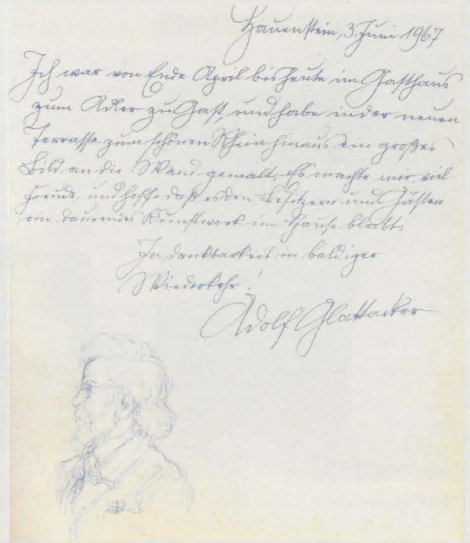 Hauenstein, 3. Juni 1967
Ich war von Ende April bis heute im Gasthaus
zum Adler zu Gast, und habe in der neuen
Terrasse zum schönen Rhein hinaus ein großes
Bild an die Wand gemalt, es machte mir viel
Freude, und hoffe daß es den Besitzern und Gästen
ein dauerndes Kunstwerk im Hause bleibt.
In Dankbarkeit in baldiger
Wiederkehr!
Adolf Glattacker